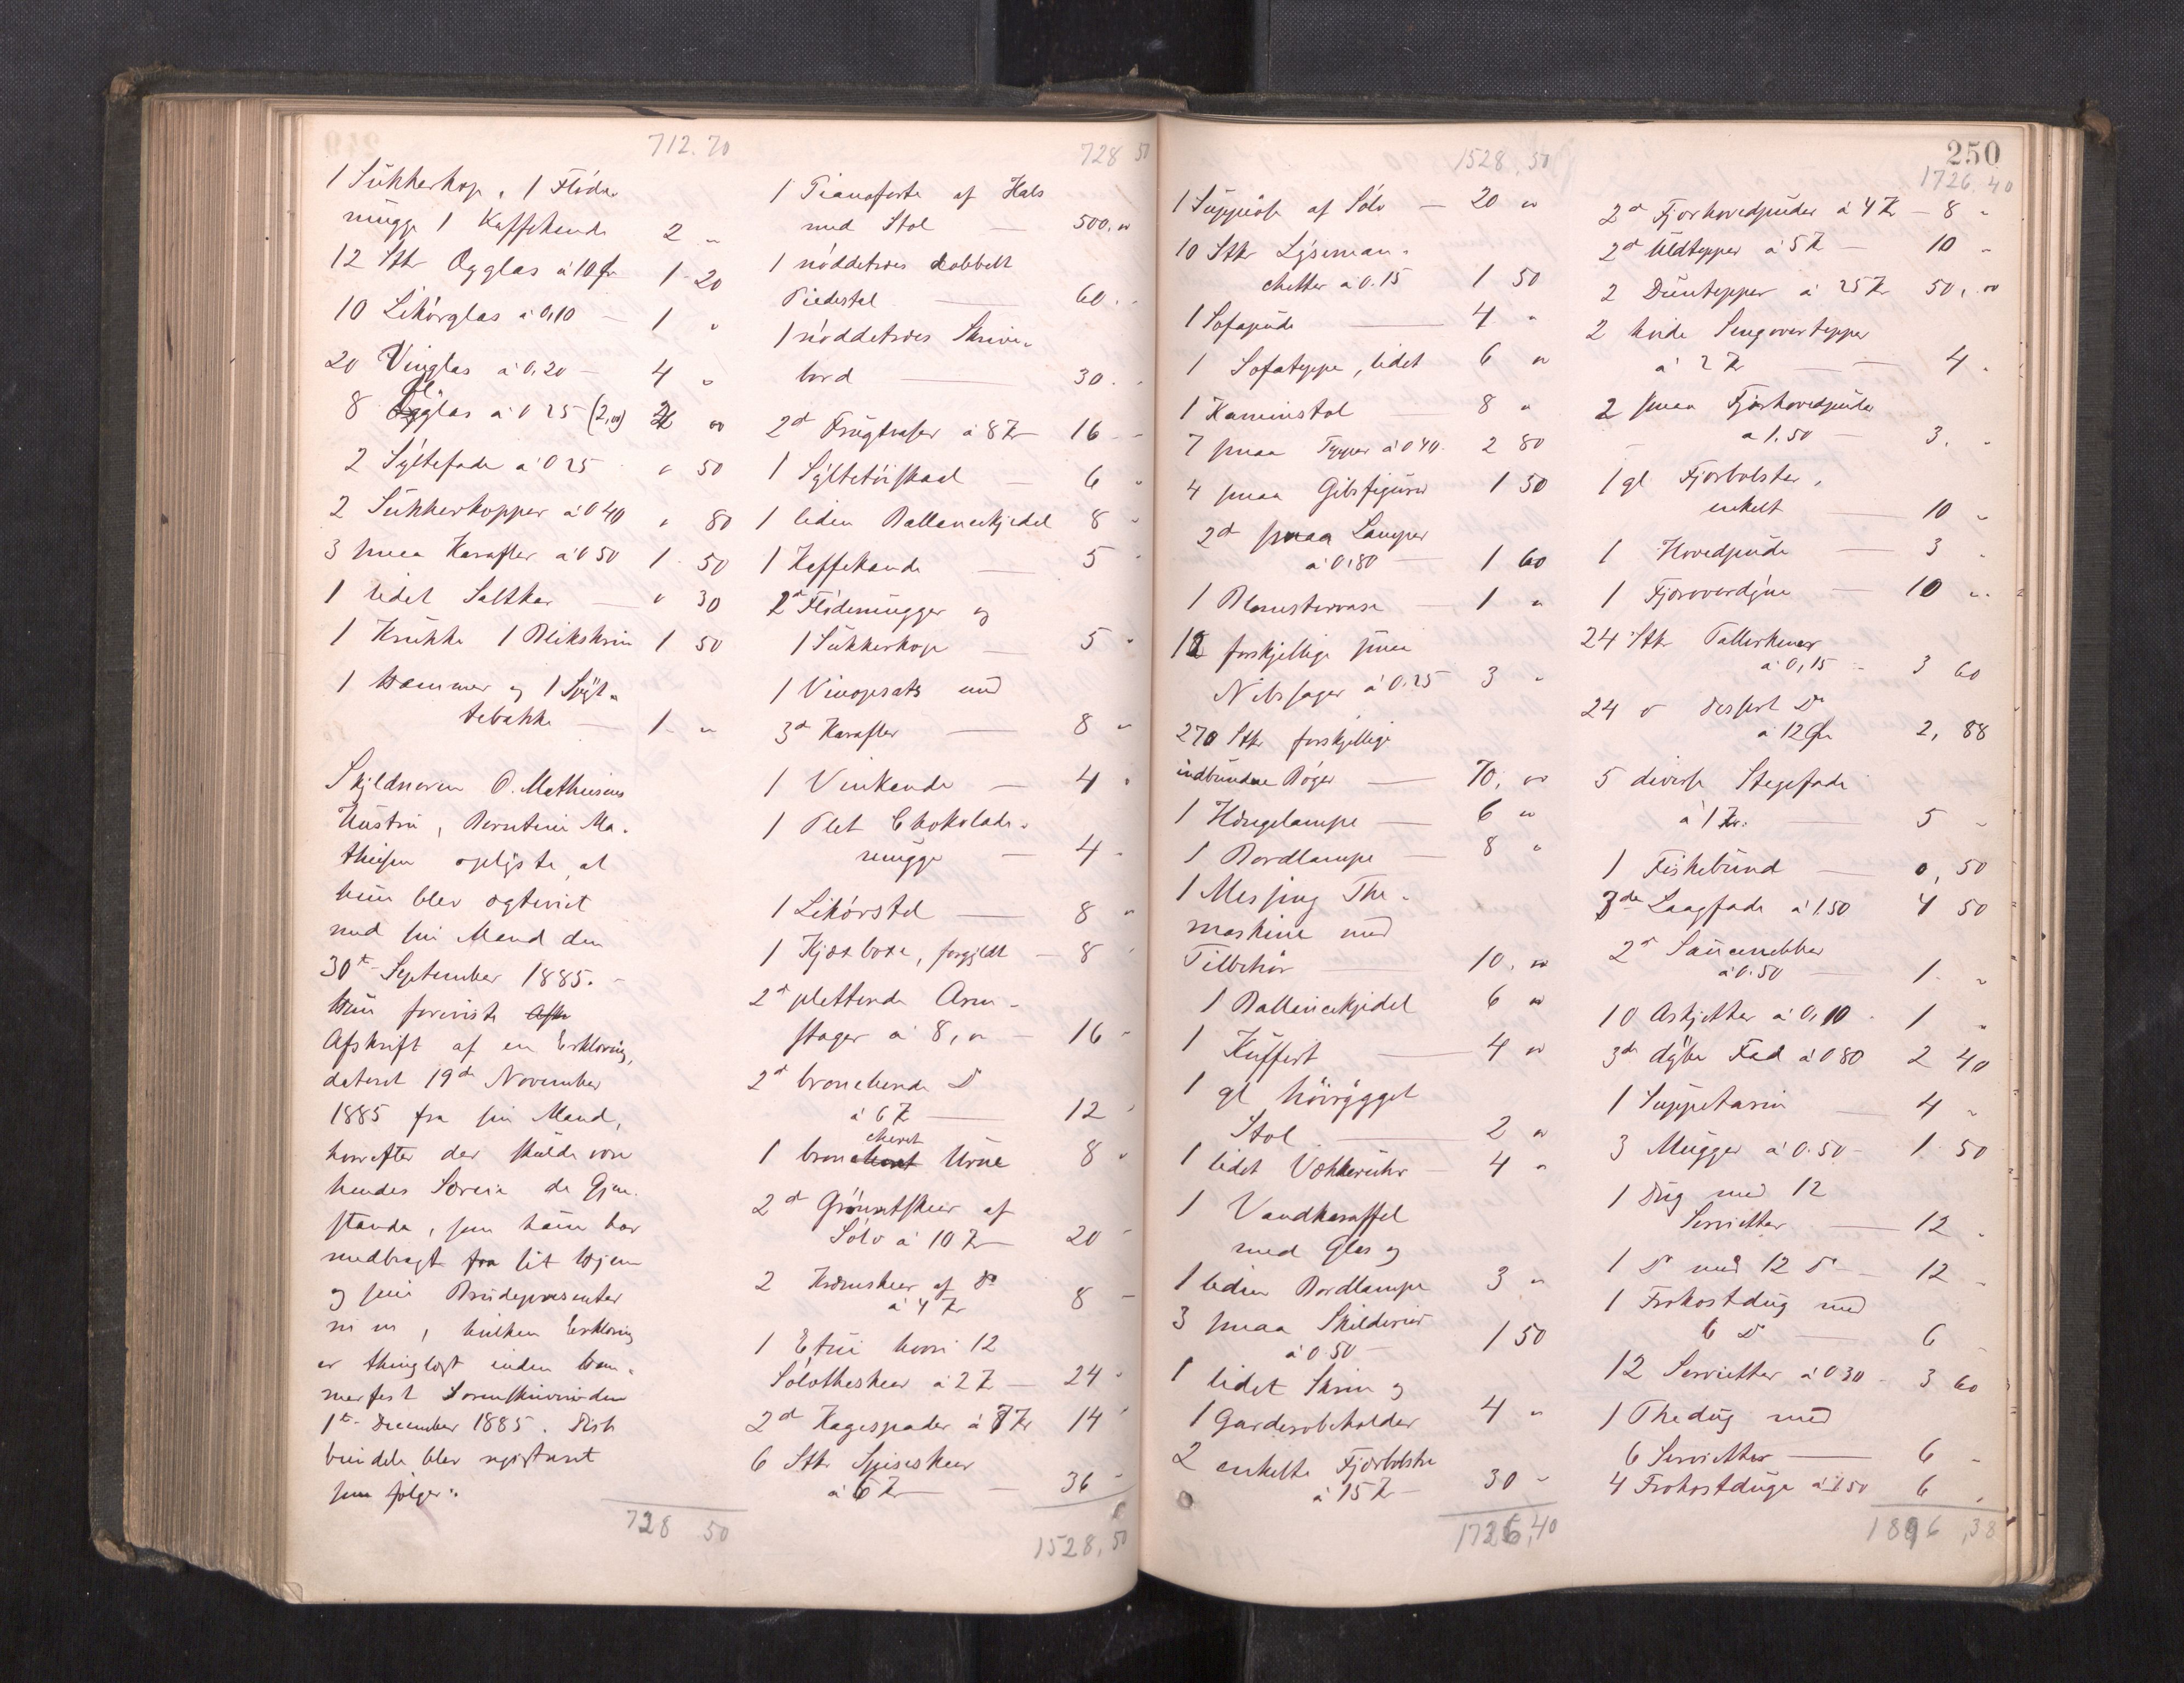 712.70
1 Sukkerkop, 1 Fløde-
mugge 1 Kaffekande 2 "
12 Stk Ægglas à 10 Øre 1 20
10 Likørglas à 0,10 — 1 "
20 Vinglas à 0,20 — 4 "
Øl
8 glas à 0 25 (2,00) 2 00
2 Syltefade à 0 25 " 50
2 Sukkerkopper à 0 40 " 80
3 smaa Karafler à 0 50 1 50
1 lidet Saltkar — " 30
1 Krukke 1 Blikskrin 1 50
1 Hammer og 1 Spyt-
tebakke — 1 "
Skyldneren O. Mathiesens
Hustru, Berntine Ma-
thiesen oplyste, at
hun blev ægteviet
med sin Mand den
30te September 1885. -
Hun foreviste Afsk
Afskrift af en Erklæring,
dateret 19de November
1885 fra sin Mand,
hvorefter der skulde være
hendes Særeie de Gjen-
stande, som hun har
medbragt fra sit Hjem
og sine Brudepresenter
m m, hvilken Erklæring
er thinglæst inden Ham-
merfest Sorenskriveri den
1te December 1885. Disse
Eiendele blev registreret
som følger:
728 50
728 50
1 Pianoforte af Hals
med Stol — 500. 00
1 nøddetræes dobbelt
Piedestal — 60. "
1 nøddetræes Skrive-
bord — 30. "
2de Frugtvaser à 8 Kr 16 -
1 Syltetøiskaal — 6 "
1 liden Ballancekjedel 8 "
1 Kaffekande — 5 "
2de Flødemugger og
1 Sukkerkop — 5 "
1 Vinopsats med
3de Karafler — 8 "
1 Vinkande — 4 "
1 Plet Chokolade-
mugge — 4 "
1 Likørstel — 8 "
1 Kjæxboxe, forgyldt — 8 "
2de pletterede Arm-
stager à 8, " — 16 "
2de broncherede Do
à 6 Kr — 12 "
cheret
1 bron Urne 8 "
2de Grøntskeer af
Sølv à 10 Kr 20 "
2 Kremskeer af Do
à 4 Kr 8 -
1 Etui hvori 12
Sølvtheskeer à 2 Kr — 24 "
2de Kagespader à 7 Kr 14 "
6 Stk Spiseskeer
à 6 Kr — 36 "
1528,50
1528,50
1 Suppeøse af Sølv — 20 "
10 Stk Lyseman-
chetter à 0.15 1 50
1 Sofapude — 4 "
1 Sofateppe, lidet 6 "
1 Kaminstol 8 "
7 smaa Tepper à 0 40. 2 80
4 smaa Gibsfigurer 1 50
2de smaa Lamper
à 0,80 — 1 60
1 Blomstervase — 1 "
12 forskjellige smaa
Nibssager à 0.25 3 "
270 Stk forskjellige
indbundne Bøger — 70, 00
1 Hængelampe — 6 "
1 Bordlampe — 8 "
1 Messing The-
maskine med
Tilbehør — 10, 00
1 Ballancekjedel 6 "
1 Kuffert — 4 "
1 gl høirygget
Stol — 2 "
1 lidet Vækkeruhr — 4 "
1 Vandkaraffel
med Glas og
1 liden Bordlampe 3 "
3 smaa Skilderier
à 0 50 — 1 50
1 lidet Skrin og
1 Garderobeholder 4 "
2 enkelte Fjærbolstre
à 15 Kr — 30 "
1726,40
250
1726,40
2de Fjærhovedpuder à 4 Kr — 8 "
2de Uldtepper à 5 Kr — 10 "
2 Duntepper à 25 Kr 50,00
2 hvide Sengovertepper
à 2 Kr — 4 "
2 smaa Fjærhovedpuder
à 1.50 — 3. "
1 gl Fjærbolster,
enkelt — 10 "
1 Hovedpude — 3 "
1 Fjæroverdyne — 10 "
24 Stk Tallerkener
à 0,15 — 3 60
24 " dessert Do
à 12 Øre 2, 88
5 diverse Stegefade
à 1 Kr. — 5 "
1 Fiskebund — 0, 50
3de Laagfade à 1.50 4 50
2de Saucenebber
à 0.50 — 1. "
10 Askjetter à 0,10 - 1 "
3de dybe Fad à 0 80 2 40
1 Suppeterin — 4 "
3 Mugger à 0.50 - 1 50
1 Dug med 12
Servietter — 12 "
1 Do med 12 Do — 12 "
1 Frokostdug med
6 Do — 6 "
12 Servietter à 0 30 - 3 60
1 Thedug med
6 Servietter — 6 "
4 Frokostduge à 1.50 6 "
1896,38